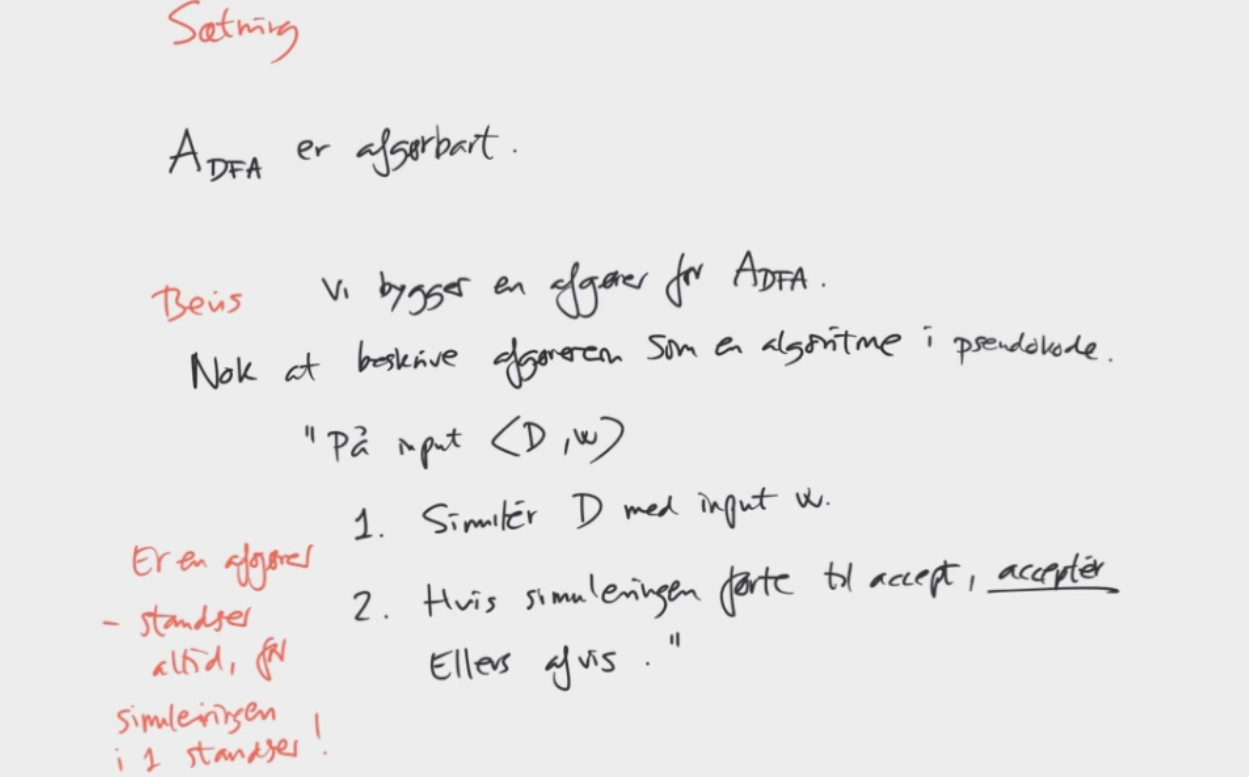 Sætning
A_DFA er afgørbart.
Bevis Vi bygger en afgører for A_DFA.
Nok at beskrive afgøreren som en algoritme i pseudokode.
"På input ⟨D, w⟩
1. Simulér D med input w.
2. Hvis simuleringen førte til accept, acceptér
Ellers afvis."
Er en afgører
- standser
altid, for
simuleringen
i 1 standser!